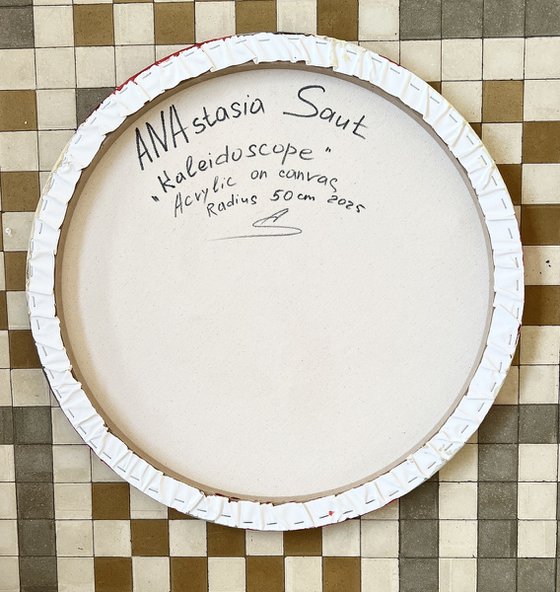 ANAstasia Saut
"Kaleidoscope"
Acrylic on canvas
Radius 50cm 2025